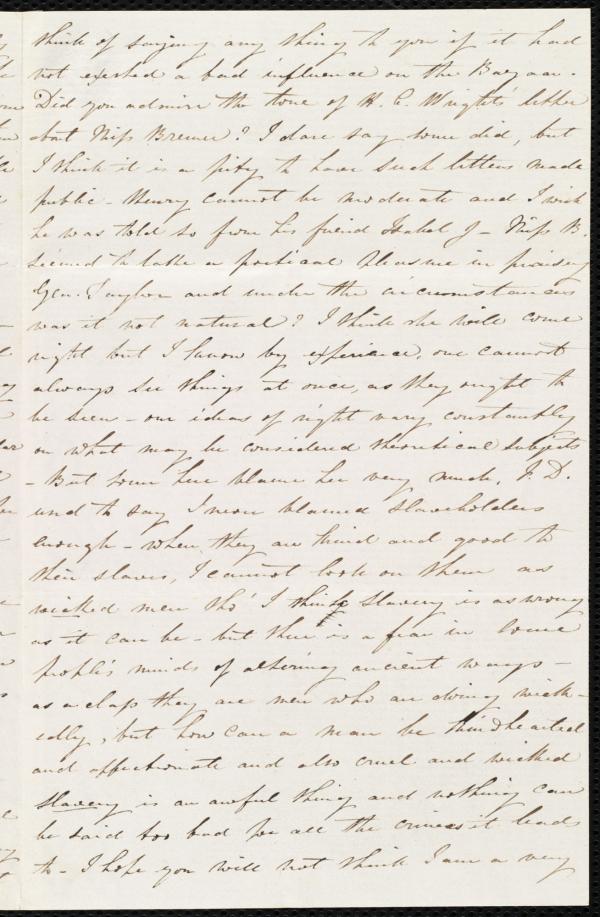 think of saying any thing to you if it had
not exerted a bad influence on the Bazaar.
Did you admire the tone of H. C. Wright's letter
abt Miss Bremer? I dare say some did, but
I think it is a pity to have such letters made
public - Henry cannot be moderate and I wish
he was told so from his friend Isabel J - Miss B.
seemed to take a poetical pleasure in praising
Gen. Taylor and under the circumstances
was it not natural? I think she will come
right but I know by experience, one cannot
always see things at once, as they ought to
be seen - our ideas of right vary constantly
on what may be considered theoretical subjects
- But some here blame her very much. F. D.
used to say I never blamed slaveholders
enough - when they are kind and good to
their slaves, I cannot look on them as
wicked men tho' I think Slavery is as wrong
as it can be - but there is a fear in some
people's minds of altering ancient ways -
as a class they are men who are doing wick-
edly, but how can a man be kindhearted
and affectionate and also cruel and wicked
Slavery is an awful thing and nothing can
be said too bad for all the crimes it leads
to - I hope you will not think I am a very